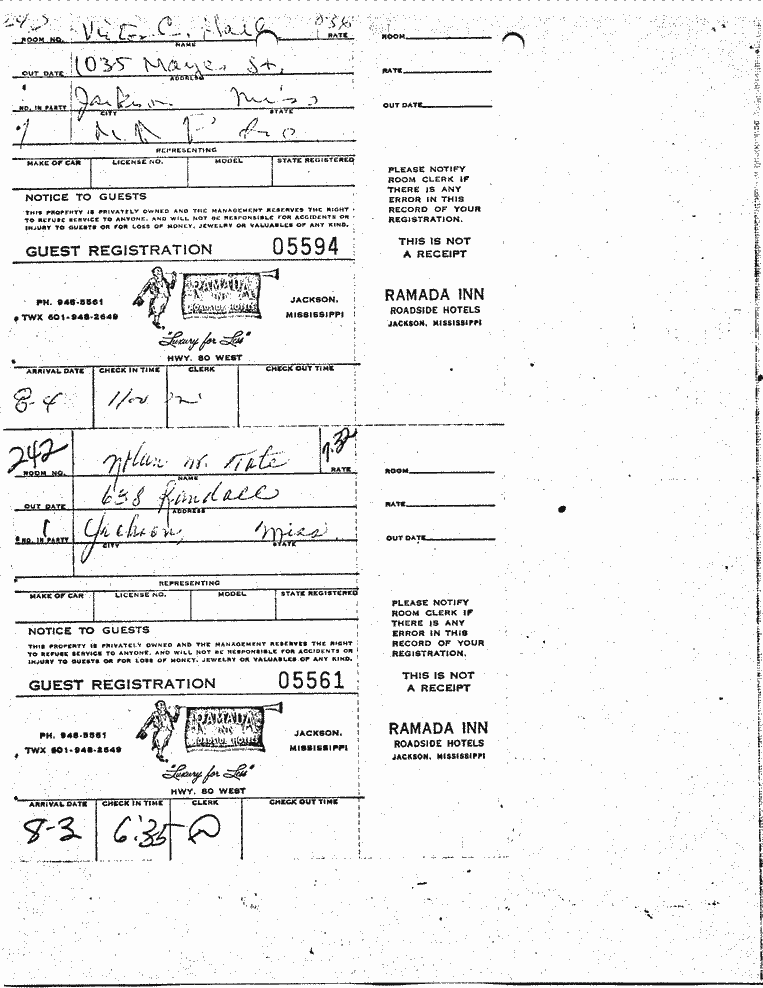 Victor C.
ROOM NO. NAME RATE ROOM
1035 Mayes St.
OUT DATE ADDRESS RATE
Jackson Miss
NO. IN PARTY CITY STATE OUT DATE
1
REPRESENTING
MAKE OF CAR LICENSE NO. MODEL STATE REGISTERED
PLEASE NOTIFY
ROOM CLERK IF
THERE IS ANY
ERROR IN THIS
RECORD OF YOUR
REGISTRATION.
NOTICE TO GUESTS
THIS PROPERTY IS PRIVATELY OWNED AND THE MANAGEMENT RESERVES THE RIGHT
TO REFUSE SERVICE TO ANYONE, AND WILL NOT BE RESPONSIBLE FOR ACCIDENTS OR
INJURY TO GUESTS OR FOR LOSS OF MONEY, JEWELRY OR VALUABLES OF ANY KIND.
GUEST REGISTRATION 05594
THIS IS NOT
A RECEIPT
PH. 948-5561
TWX 601-948-2649
RAMADA
INN
ROADSIDE HOTELS
JACKSON,
MISSISSIPPI
"Luxury for Less"
HWY. 80 WEST
RAMADA INN
ROADSIDE HOTELS
JACKSON, MISSISSIPPI
ARRIVAL DATE CHECK IN TIME CLERK CHECK OUT TIME
8-4 1100
242 W. Tate 7.32
ROOM NO. NAME RATE ROOM
638 Randall
OUT DATE ADDRESS RATE
1 Jackson, Miss.
NO. IN PARTY CITY STATE OUT DATE
REPRESENTING
MAKE OF CAR LICENSE NO. MODEL STATE REGISTERED
PLEASE NOTIFY
ROOM CLERK IF
THERE IS ANY
ERROR IN THIS
RECORD OF YOUR
REGISTRATION.
NOTICE TO GUESTS
THIS PROPERTY IS PRIVATELY OWNED AND THE MANAGEMENT RESERVES THE RIGHT
TO REFUSE SERVICE TO ANYONE, AND WILL NOT BE RESPONSIBLE FOR ACCIDENTS OR
INJURY TO GUESTS OR FOR LOSS OF MONEY, JEWELRY OR VALUABLES OF ANY KIND.
GUEST REGISTRATION 05561
THIS IS NOT
A RECEIPT
PH. 948-5561
TWX 601-948-2649
RAMADA
INN
ROADSIDE HOTELS
JACKSON,
MISSISSIPPI
"Luxury for Less"
HWY. 80 WEST
RAMADA INN
ROADSIDE HOTELS
JACKSON, MISSISSIPPI
ARRIVAL DATE CHECK IN TIME CLERK CHECK OUT TIME
8-3 6:35